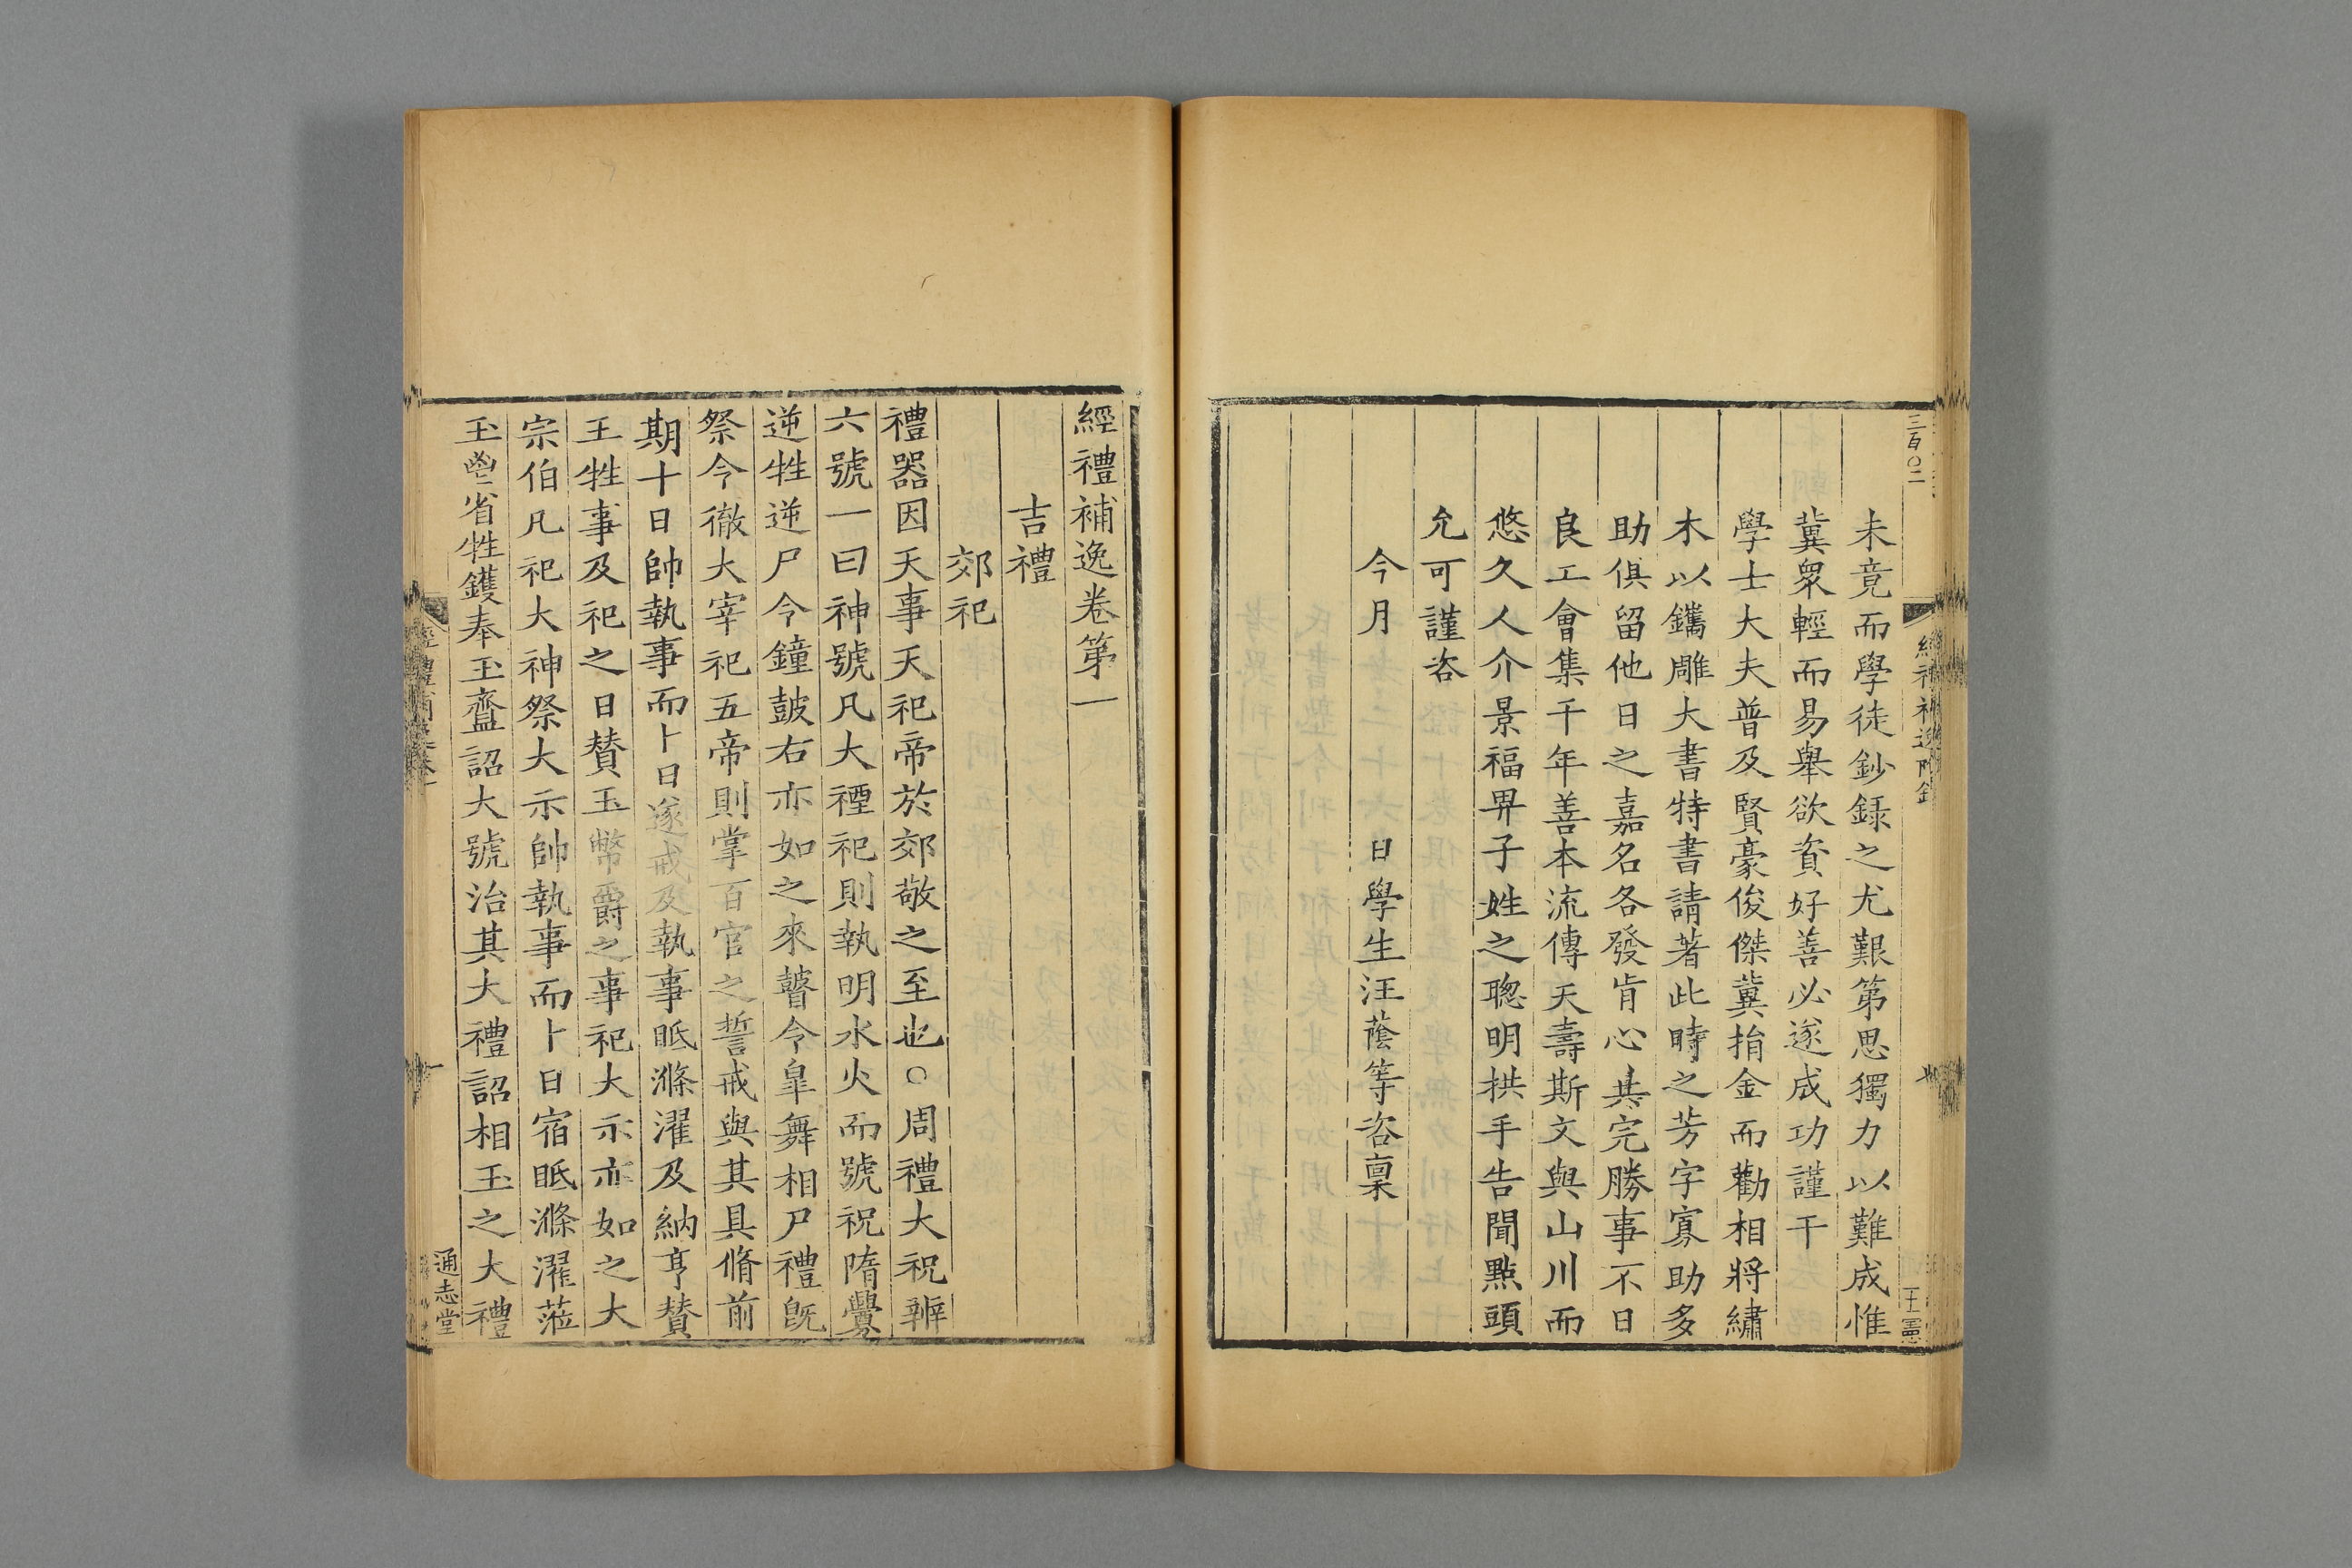 三百〇二
未竟而學徒鈔録之尤艱第思獨力以難成惟
冀衆輕而易舉欲資好善必遂成功謹干
學士大夫普及賢豪俊傑冀捐金而勸相將繡
木以鐫雕大書特書請著此時之芳字寡助多
助俱留他日之嘉名各發肯心共完勝事不日
良工會集千年善本流傳天壽斯文與山川而
悠久人介景福畀子姓之聰明拱手告聞㸃頭
允可謹咨
今月　　　　日學生汪䕃等咨稟
王憲
經禮補逸卷第一
吉禮
郊祀
禮器因天事天祀帝於郊敬之至也○周禮大祝辨
六號一曰神號凡大禋祀則執明水火而號祝隋釁
逆牲逆尸令鐘鼓右亦如之來瞽令臯舞相尸禮旣
祭令徹大宰祀五帝則掌百官之誓戒與其具脩前
期十日帥執事而卜日遂戒及執事眡滌濯及納亨贊
王牲事及祀之日賛玉幣爵之事祀大示亦如之大
宗伯凡祀大神祭大示帥執事而卜日宿眡滌濯蒞
玉鬯省牲鑊奉玉齍詔大號治其大禮詔相王之大禮
通志堂